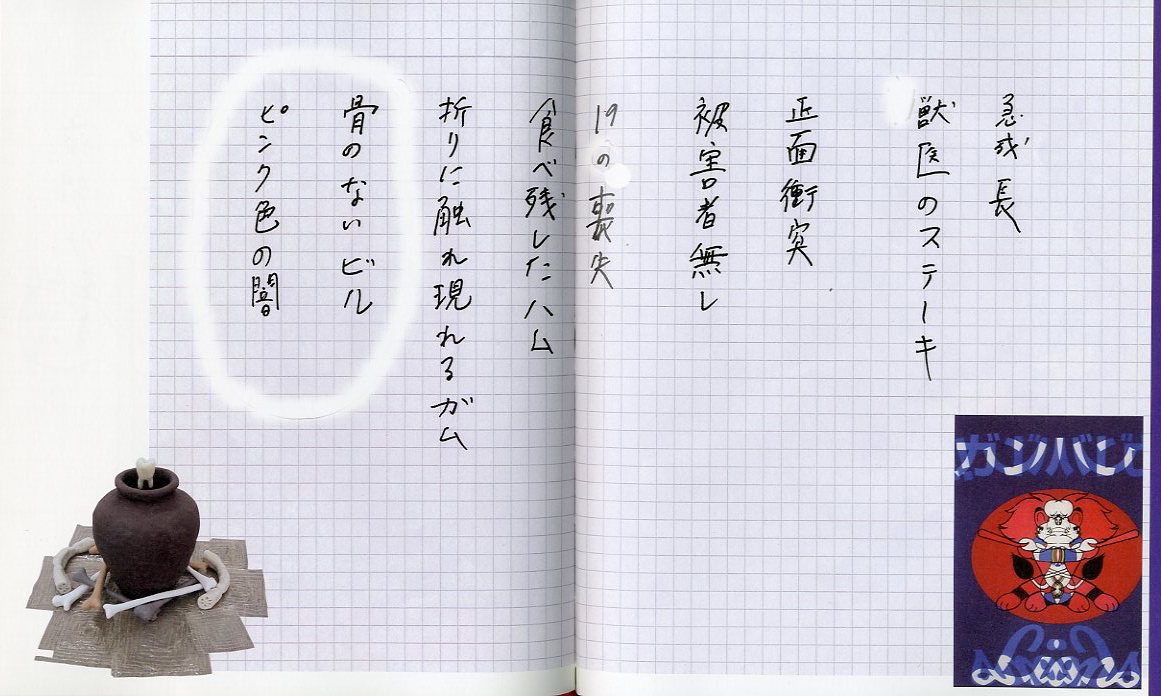 急成長
獣医のステーキ
正面衝突
被害者無し
19の喪失
食べ残したハム
折りに触れ現れるガム
骨のないビル
ピンク色の闇